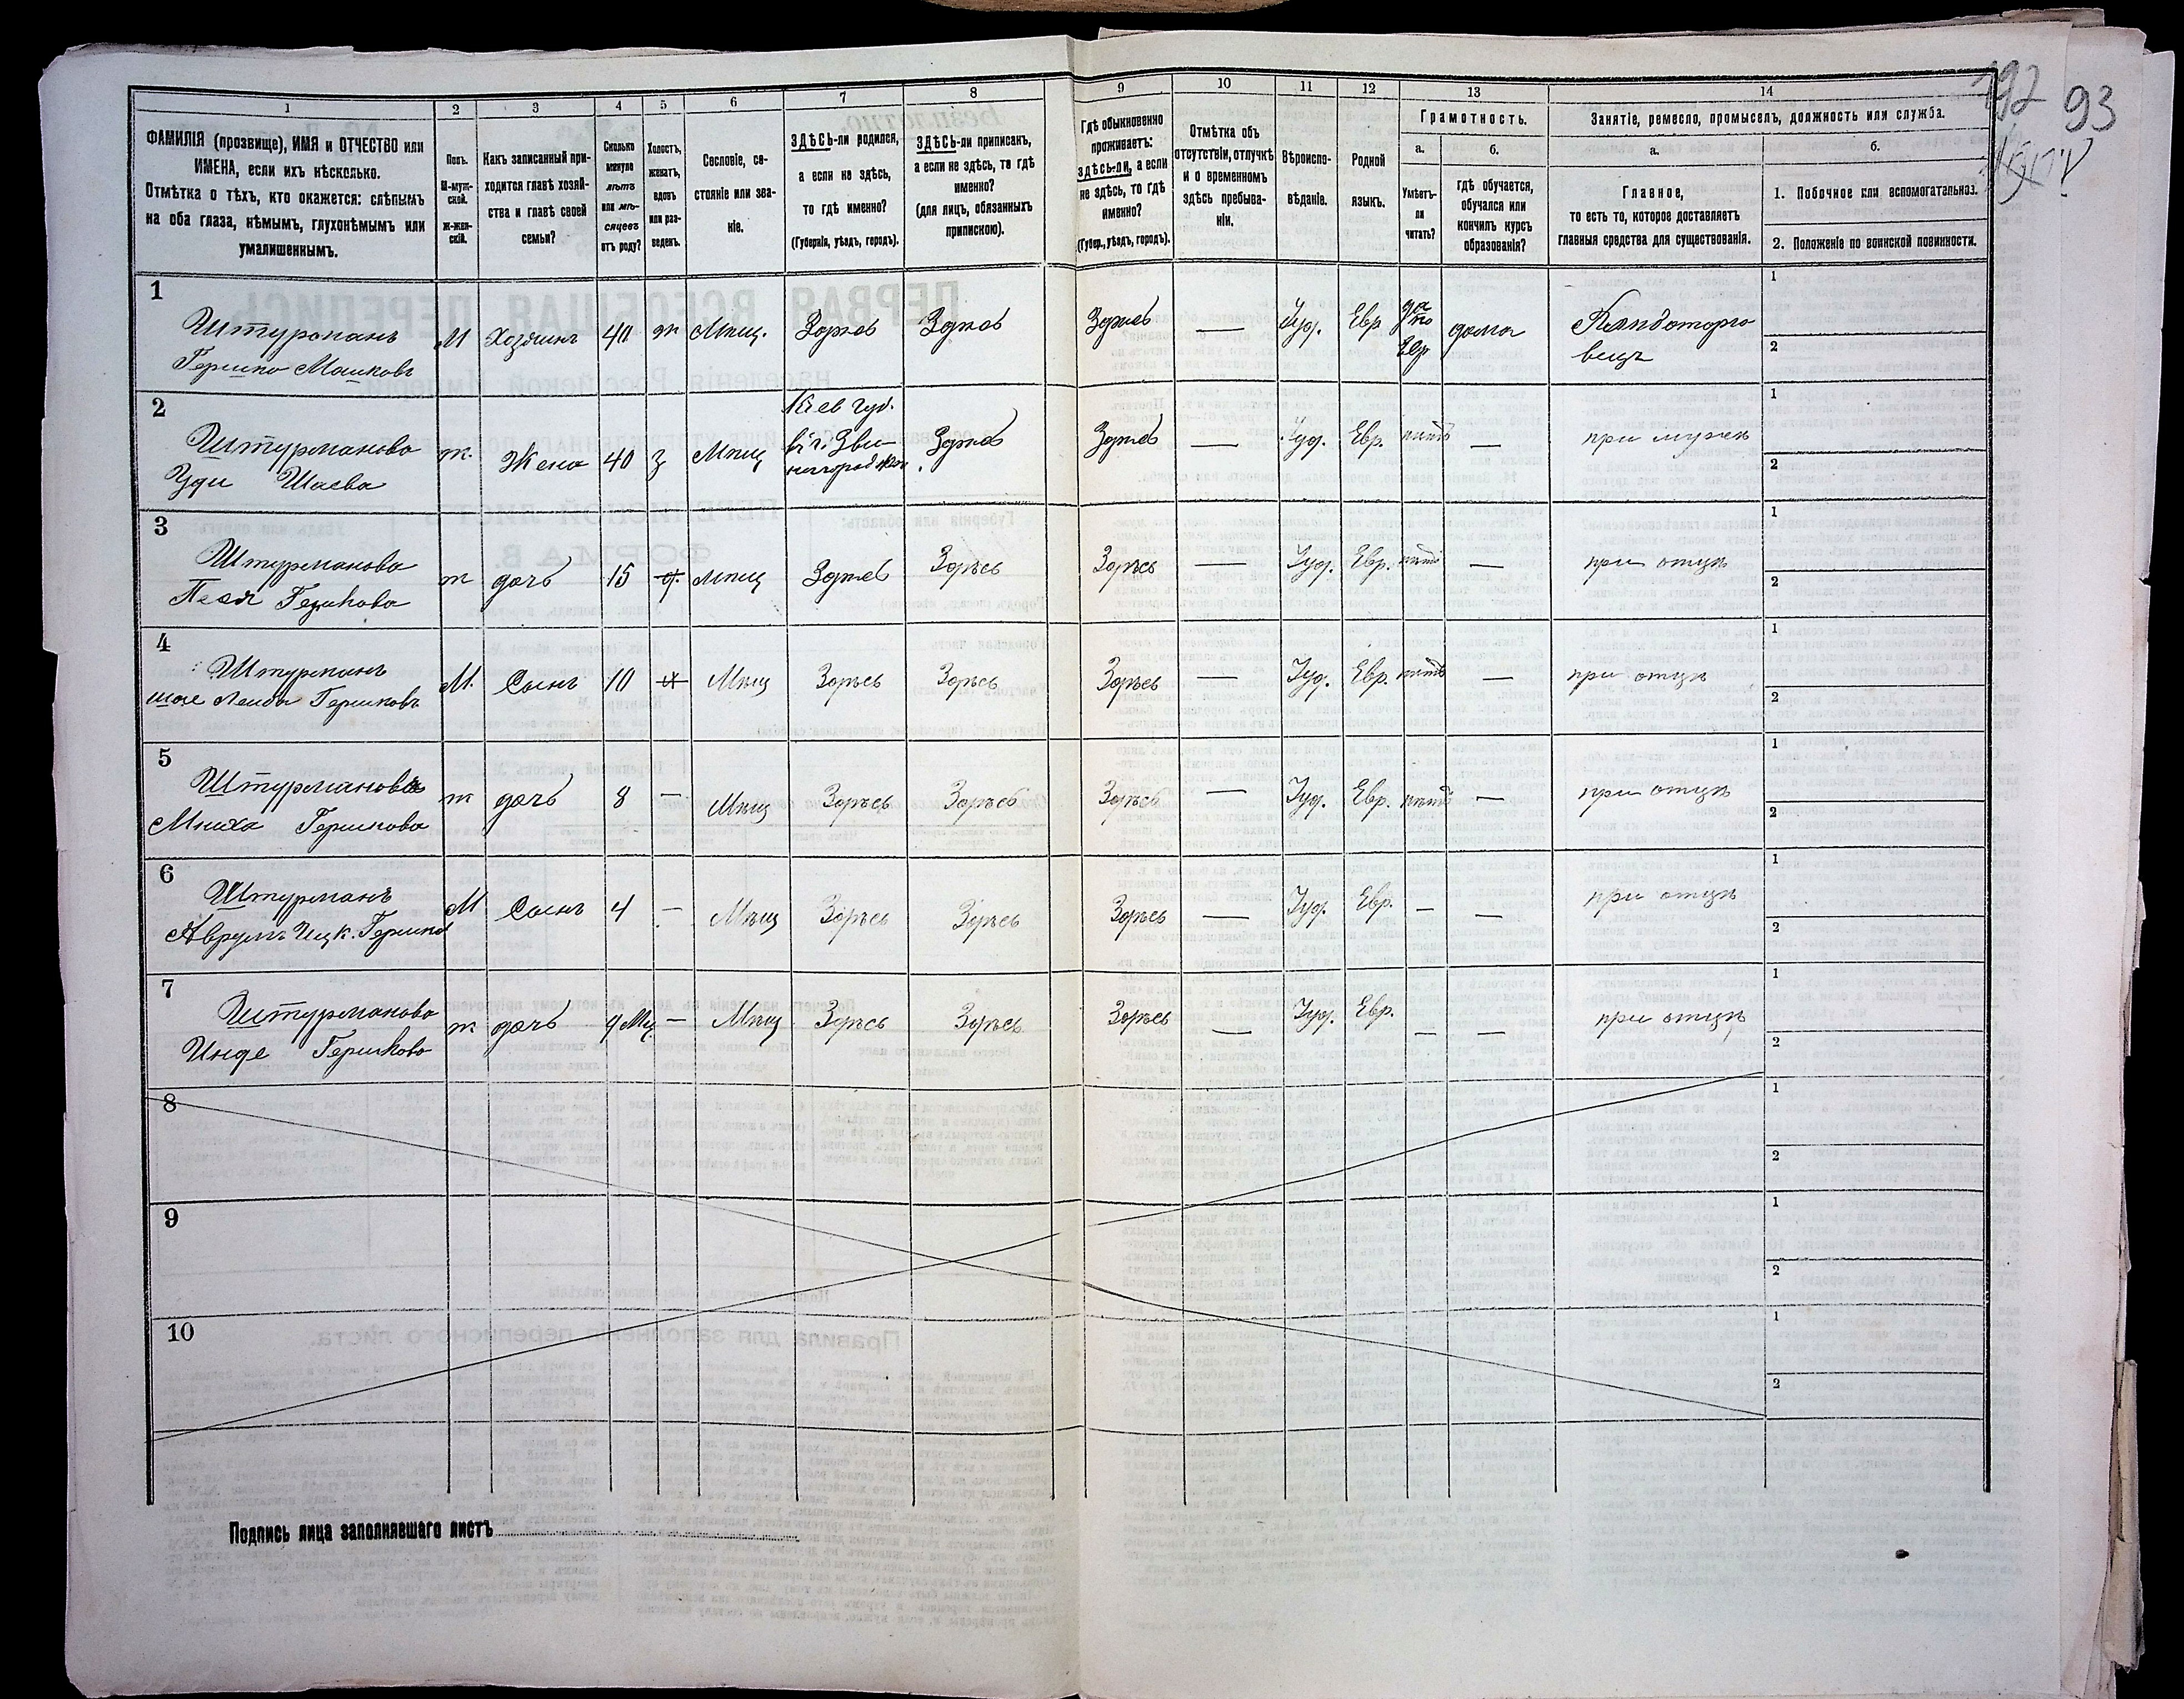 192 93
1 2 3 4 5 6 7 8 9 10 11 12 13 14
ФАМИЛІЯ (прозвище), ИМЯ и ОТЧЕСТВО или
ИМЕНА, если ихъ нѣсколько.
Отмѣтка о тѣхъ, кто окажется: слѣпымъ
на оба глаза, нѣмымъ, глухонѣмымъ или
умалишеннымъ.
Полъ.
М-муж-
ской.
Ж-жен-
скій.
Какъ записанный при-
ходится главѣ хозяй-
ства и главѣ своей
семьи?
Сколько
минуло
лѣтъ
или мѣ-
сяцевъ
отъ роду?
Холостъ,
женатъ,
вдовъ
или раз-
веденъ.
Сословіе, со-
стояніе или зва-
ніе.
ЗДѢСЬ-ли родился,
а если не здѣсь,
то гдѣ именно?
(Губернія, уѣздъ, городъ).
ЗДѢСЬ-ли приписанъ,
а если не здѣсь, то гдѣ
именно?
(для лицъ, обязанныхъ
припискою).
Гдѣ обыкновенно
проживаетъ:
ЗДѢСЬ-ЛИ, а если
не здѣсь, то гдѣ
именно?
(Губер., уѣздъ, городъ).
Отмѣтка объ
отсутствіи, отлучкѣ
и о временномъ
здѣсь пребыва-
ніи.
Вѣроиспо-
вѣданіе.
Родной
языкъ.
Грамотность.
а.
Умѣетъ-
ли
читать?
б.
гдѣ обучается,
обучался или
кончилъ курсъ
образованія?
Занятіе, ремесло, промыселъ, должность или служба.
а.
Главное,
то есть то, которое доставляетъ
главныя средства для существованія.
б.
1. Побочное или вспомогательное.
2. Положеніе по воинской повинности.
1
Штурманъ
Гершко Машковъ
М Хозяинъ 40 ж Мѣщ. Здѣсь Здѣсь Здѣсь — Іуд. Евр да по Евр дома
1
2
2
Штурманова
Шаева
ж. Жена 40 з Мѣщ Кіев губ. Здѣсь Здѣсь — Іуд. Евр. нѣтъ — при мужѣ
1
2
3
Штурманова
Песя Гершкова
ж дочь 15 Мѣщ Здѣсь Здѣсь Здѣсь — Іуд. Евр. нѣтъ — при отцѣ
1
2
4
Штурманъ
Лейба Гершковъ
М. Сынъ 10 Мѣщ Здѣсь Здѣсь Здѣсь — Іуд. Евр. нѣтъ — при отцѣ
1
2
5
Штурманова
Гершкова
ж дочь 8 — Мѣщ Здѣсь Здѣсь Здѣсь — Іуд. Евр. нѣтъ — при отцѣ
1
2
6
Штурманъ
Аврумъ Ицк. Гершков
М Сынъ 4 — Мѣщ Здѣсь Здѣсь Здѣсь — Іуд. Евр. — — при отцѣ
1
2
7
Штурманова
Гершкова
ж дочь — Мѣщ Здѣсь Здѣсь Здѣсь — Іуд. Евр. — — при отцѣ
1
2
8
1
2
9
1
2
10
1
2
Подпись лица заполнявшаго листъ